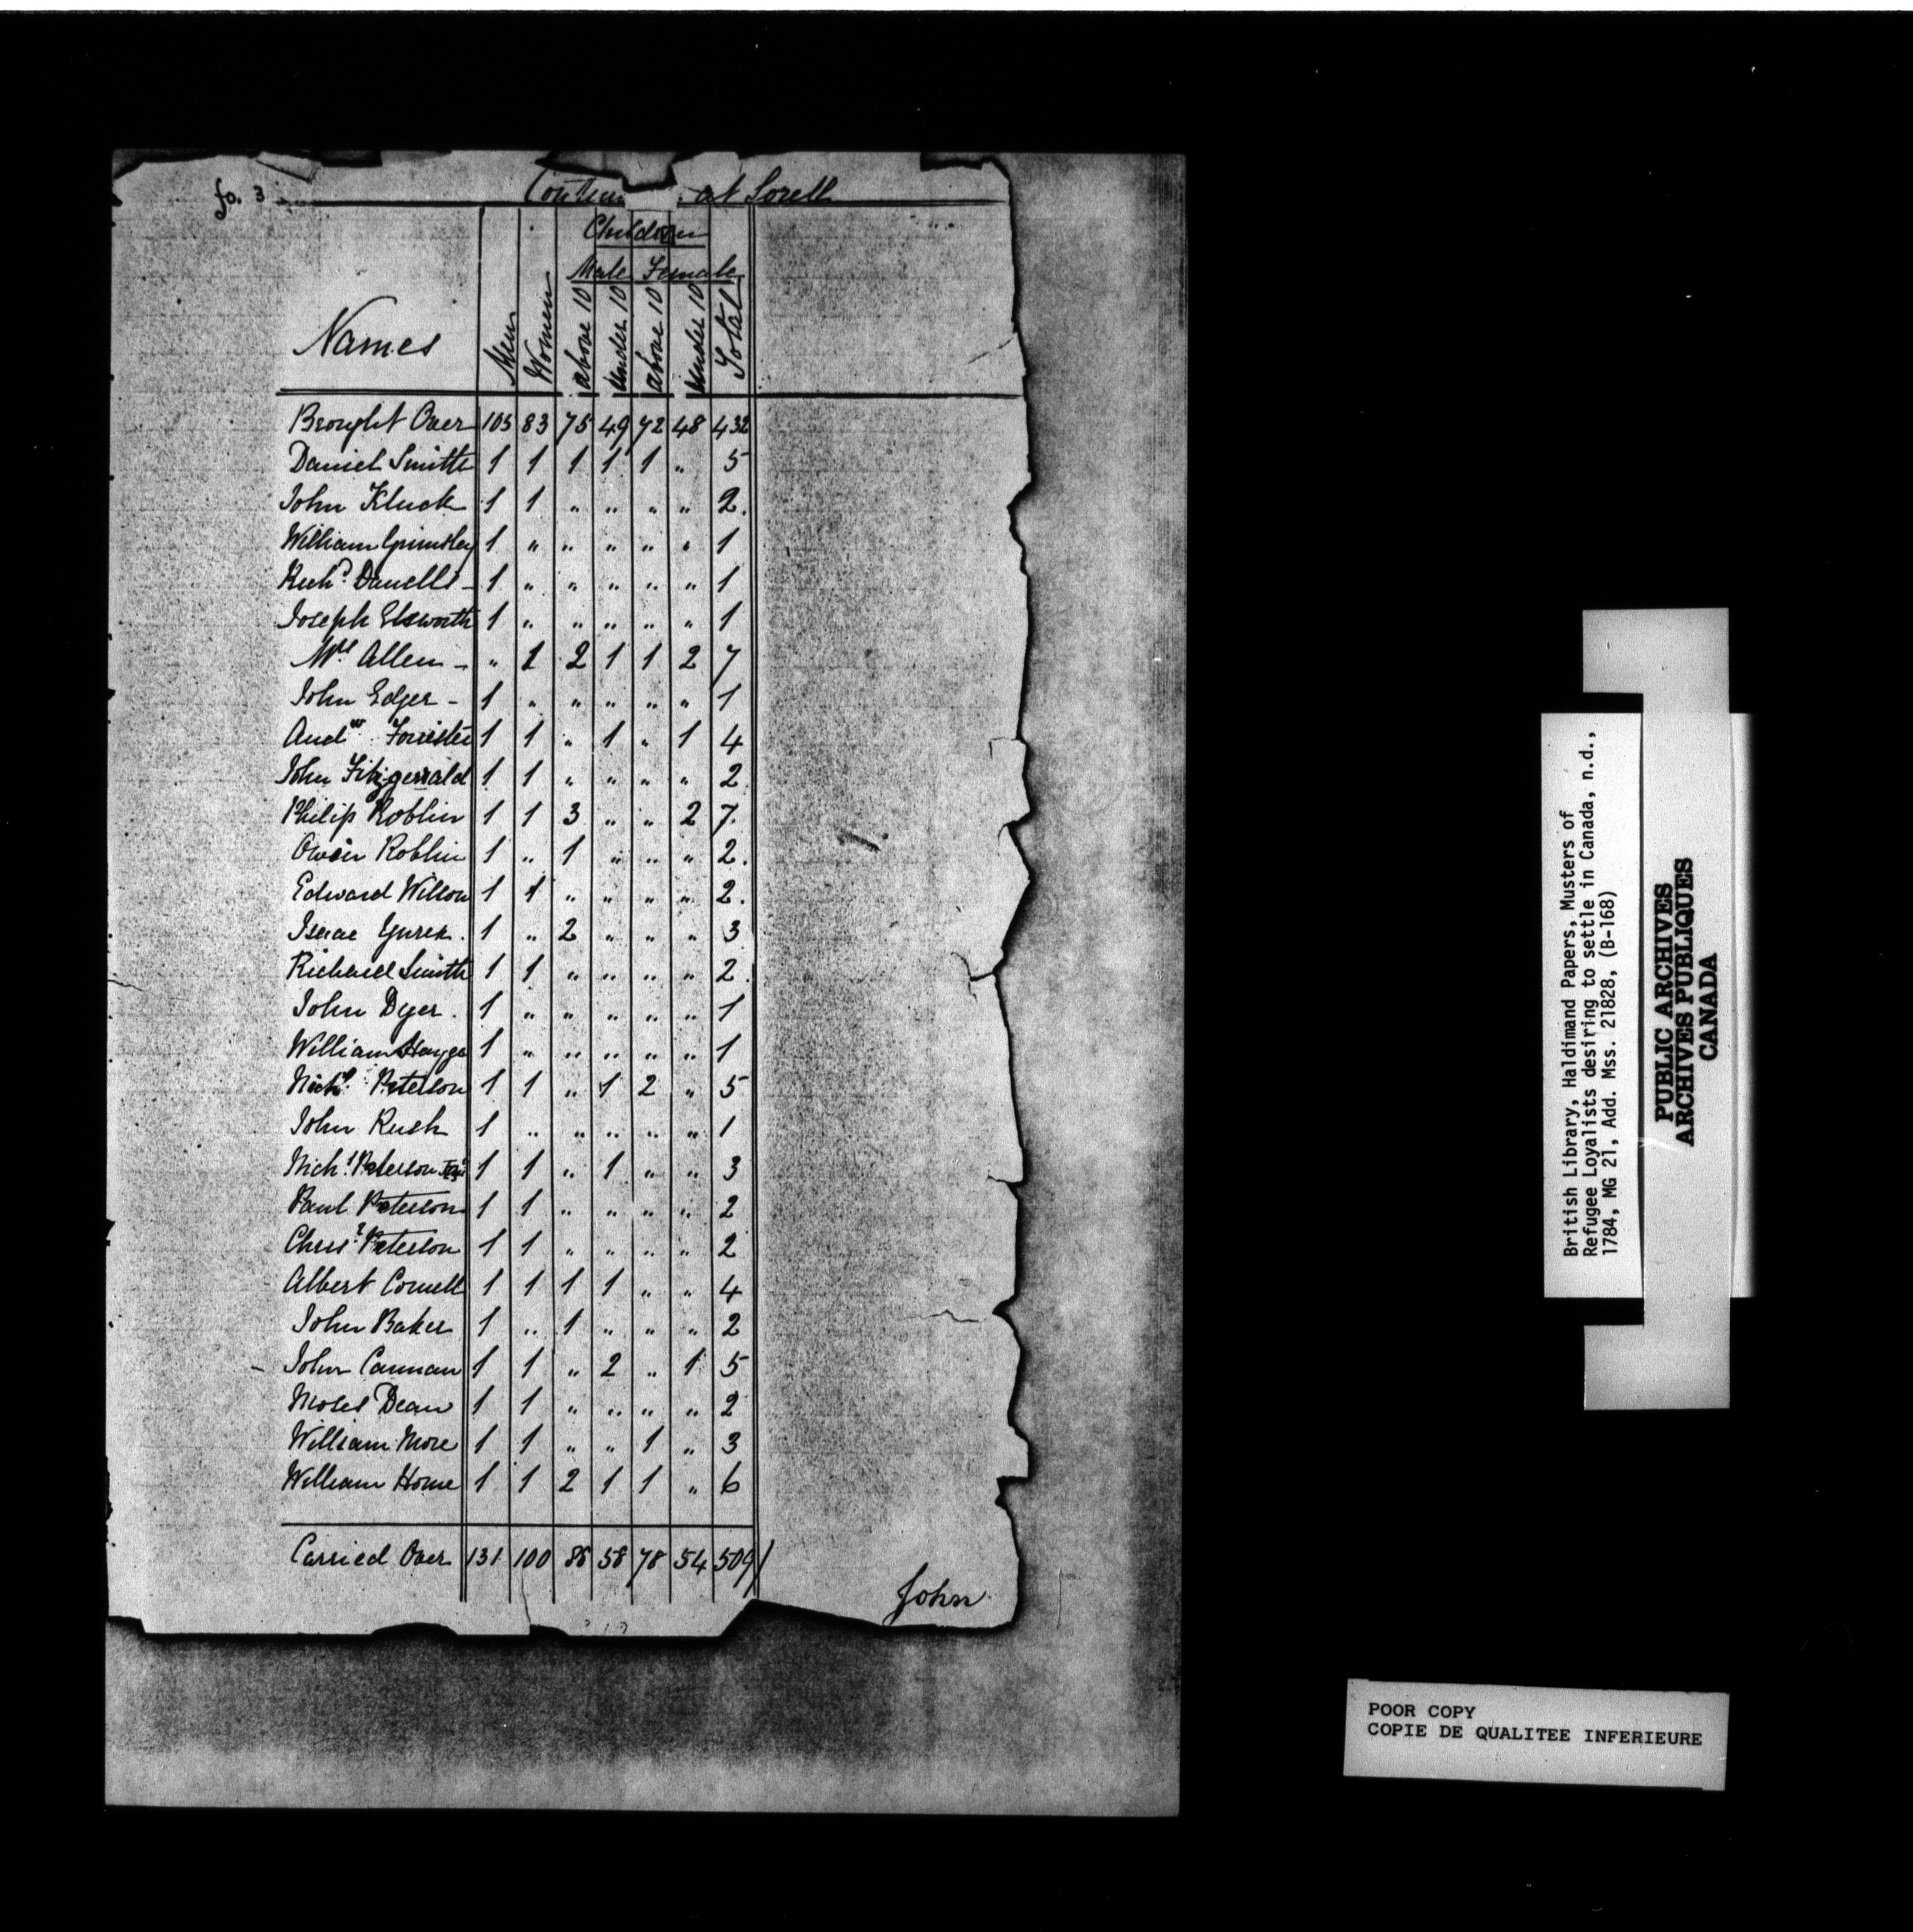 fo. 3
Contin at Sorell
Children
Male Female
Names Men Women above 10 under 10 above 10 under 10 Total
Brought Over 105 83 75 49 72 48 432
Daniel Smith 1 1 1 1 1 " 5
John Kluck 1 1 " " " " 2.
William Grimsley 1 " " " " " 1
Richd. Danells - 1 " " " " " 1
Joseph Elsworth 1 " " " " " 1
Mrs Allen - " 1 2 1 1 2 7
John Edger - 1 " " " " " 1
Andw Forrister 1 1 " 1 " 1 4
John Fitzgerrald 1 1 " " " " 2
Philip Roblin 1 1 3 " " 2 7.
Owin Roblin 1 " 1 " " " 2.
Edward Willson 1 1 " " " " 2.
Isaac 1 " 2 " " " 3
Richard Smith 1 1 " " " " 2.
John Dyer. 1 " " " " " 1
William 1 " " " " " 1
Nichs. Peterson 1 1 " 1 2 " 5
John Rush 1 " " " " " 1
Nichs. Peterson Junr 1 1 " 1 " " 3
Paul Peterson 1 1 " " " " 2
Chrisr. Peterson 1 1 " " " " 2
Albert Cornell 1 1 1 1 " " 4
John Baker 1 " 1 " " " 2
- John Cannan 1 1 " 2 " 1 5
Moses Dean 1 1 " " " " 2
William More 1 1 " " 1 " 3
William Horne 1 1 2 1 1 " 6
Carried Over 131 100 88 58 78 54 509/
John
British Library, Haldimand Papers, Musters of
Refugee Loyalists desiring to settle in Canada, n.d.,
1784, MG 21, Add. Mss. 21828, (B-168)
PUBLIC ARCHIVES
ARCHIVES PUBLIQUES
CANADA
POOR COPY
COPIE DE QUALITEE INFERIEURE